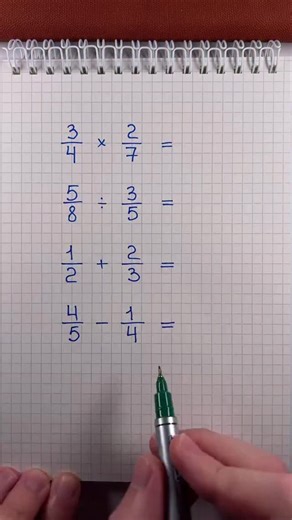 3/4 × 2/7 =
5/8 ÷ 3/5 =
1/2 + 2/3 =
4/5 − 1/4 =